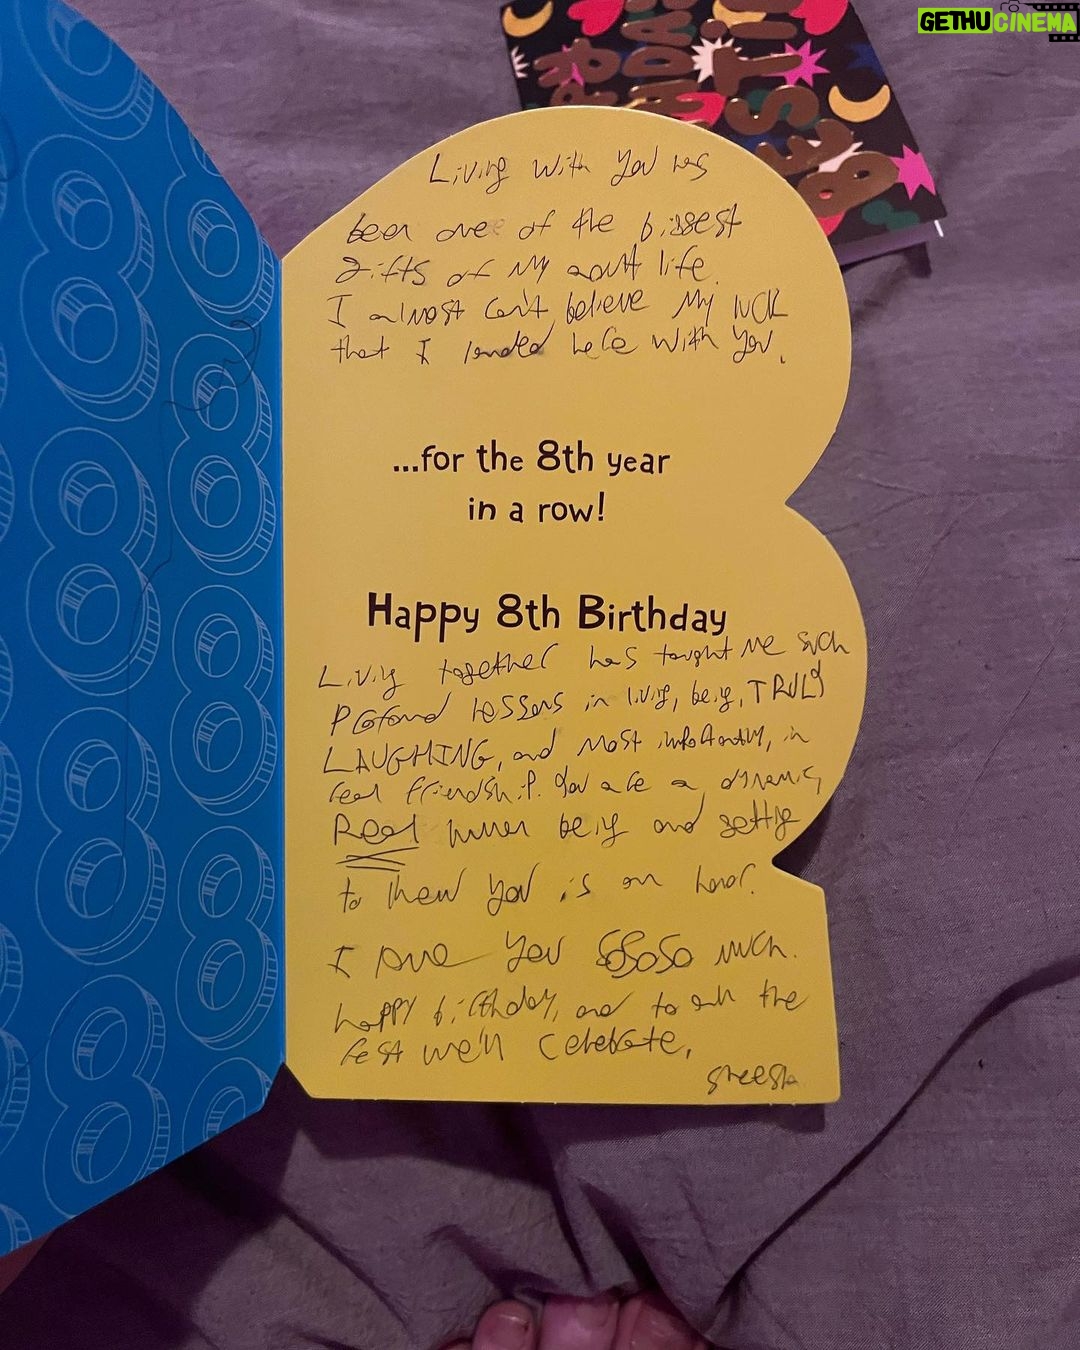 GETHUCINEMA
Living with you has
been one of the biggest
gifts of my adult life.
I almost can't believe my luck
that I landed here with you.
...for the 8th year
in a row!
Happy 8th Birthday
Living together has taught me such
profound lessons in living, being, TRULY
LAUGHING, and most importantly, in
real friendship. You are a dynamic,
Real human being and getting
to know you is an honor.
I love you SoSoSo much.
happy birthday, and to all the
rest we'll celebrate,